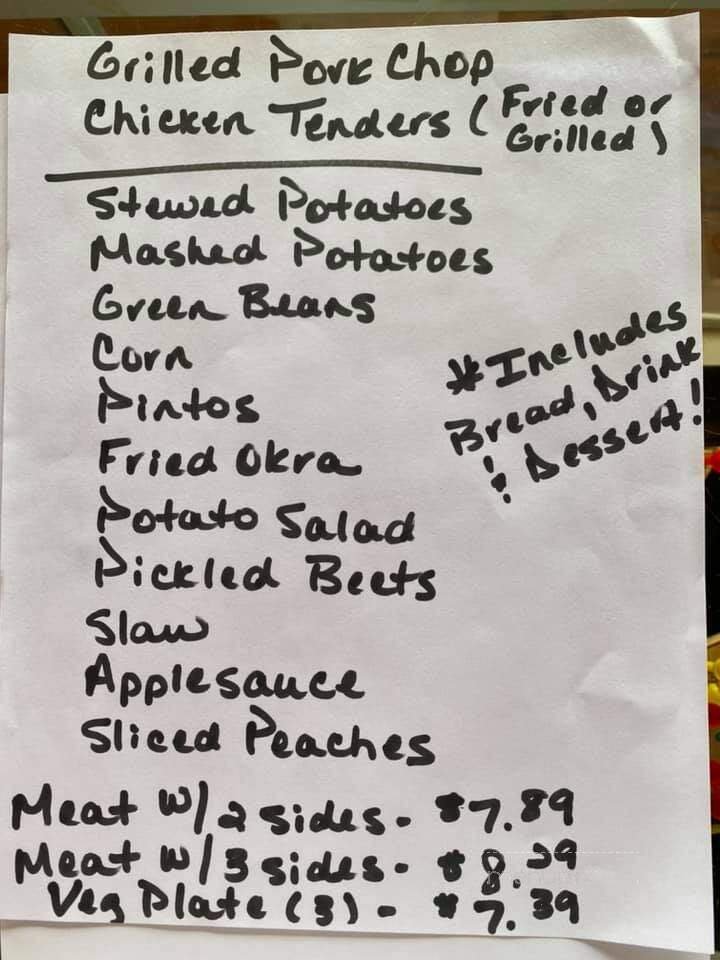 Grilled Pork Chop
Chicken Tenders (Fried or
Grilled)
Stewed Potatoes
Mashed Potatoes
Green Beans
Corn
Pintos
Fried Okra
Potato Salad
Pickled Beets
Slaw
Applesauce
Sliced Peaches
*Includes
Bread, Drink
& Dessert!
Meat w/2 sides- $7.89
Meat w/3 sides-
Veg Plate (3) - $7.39